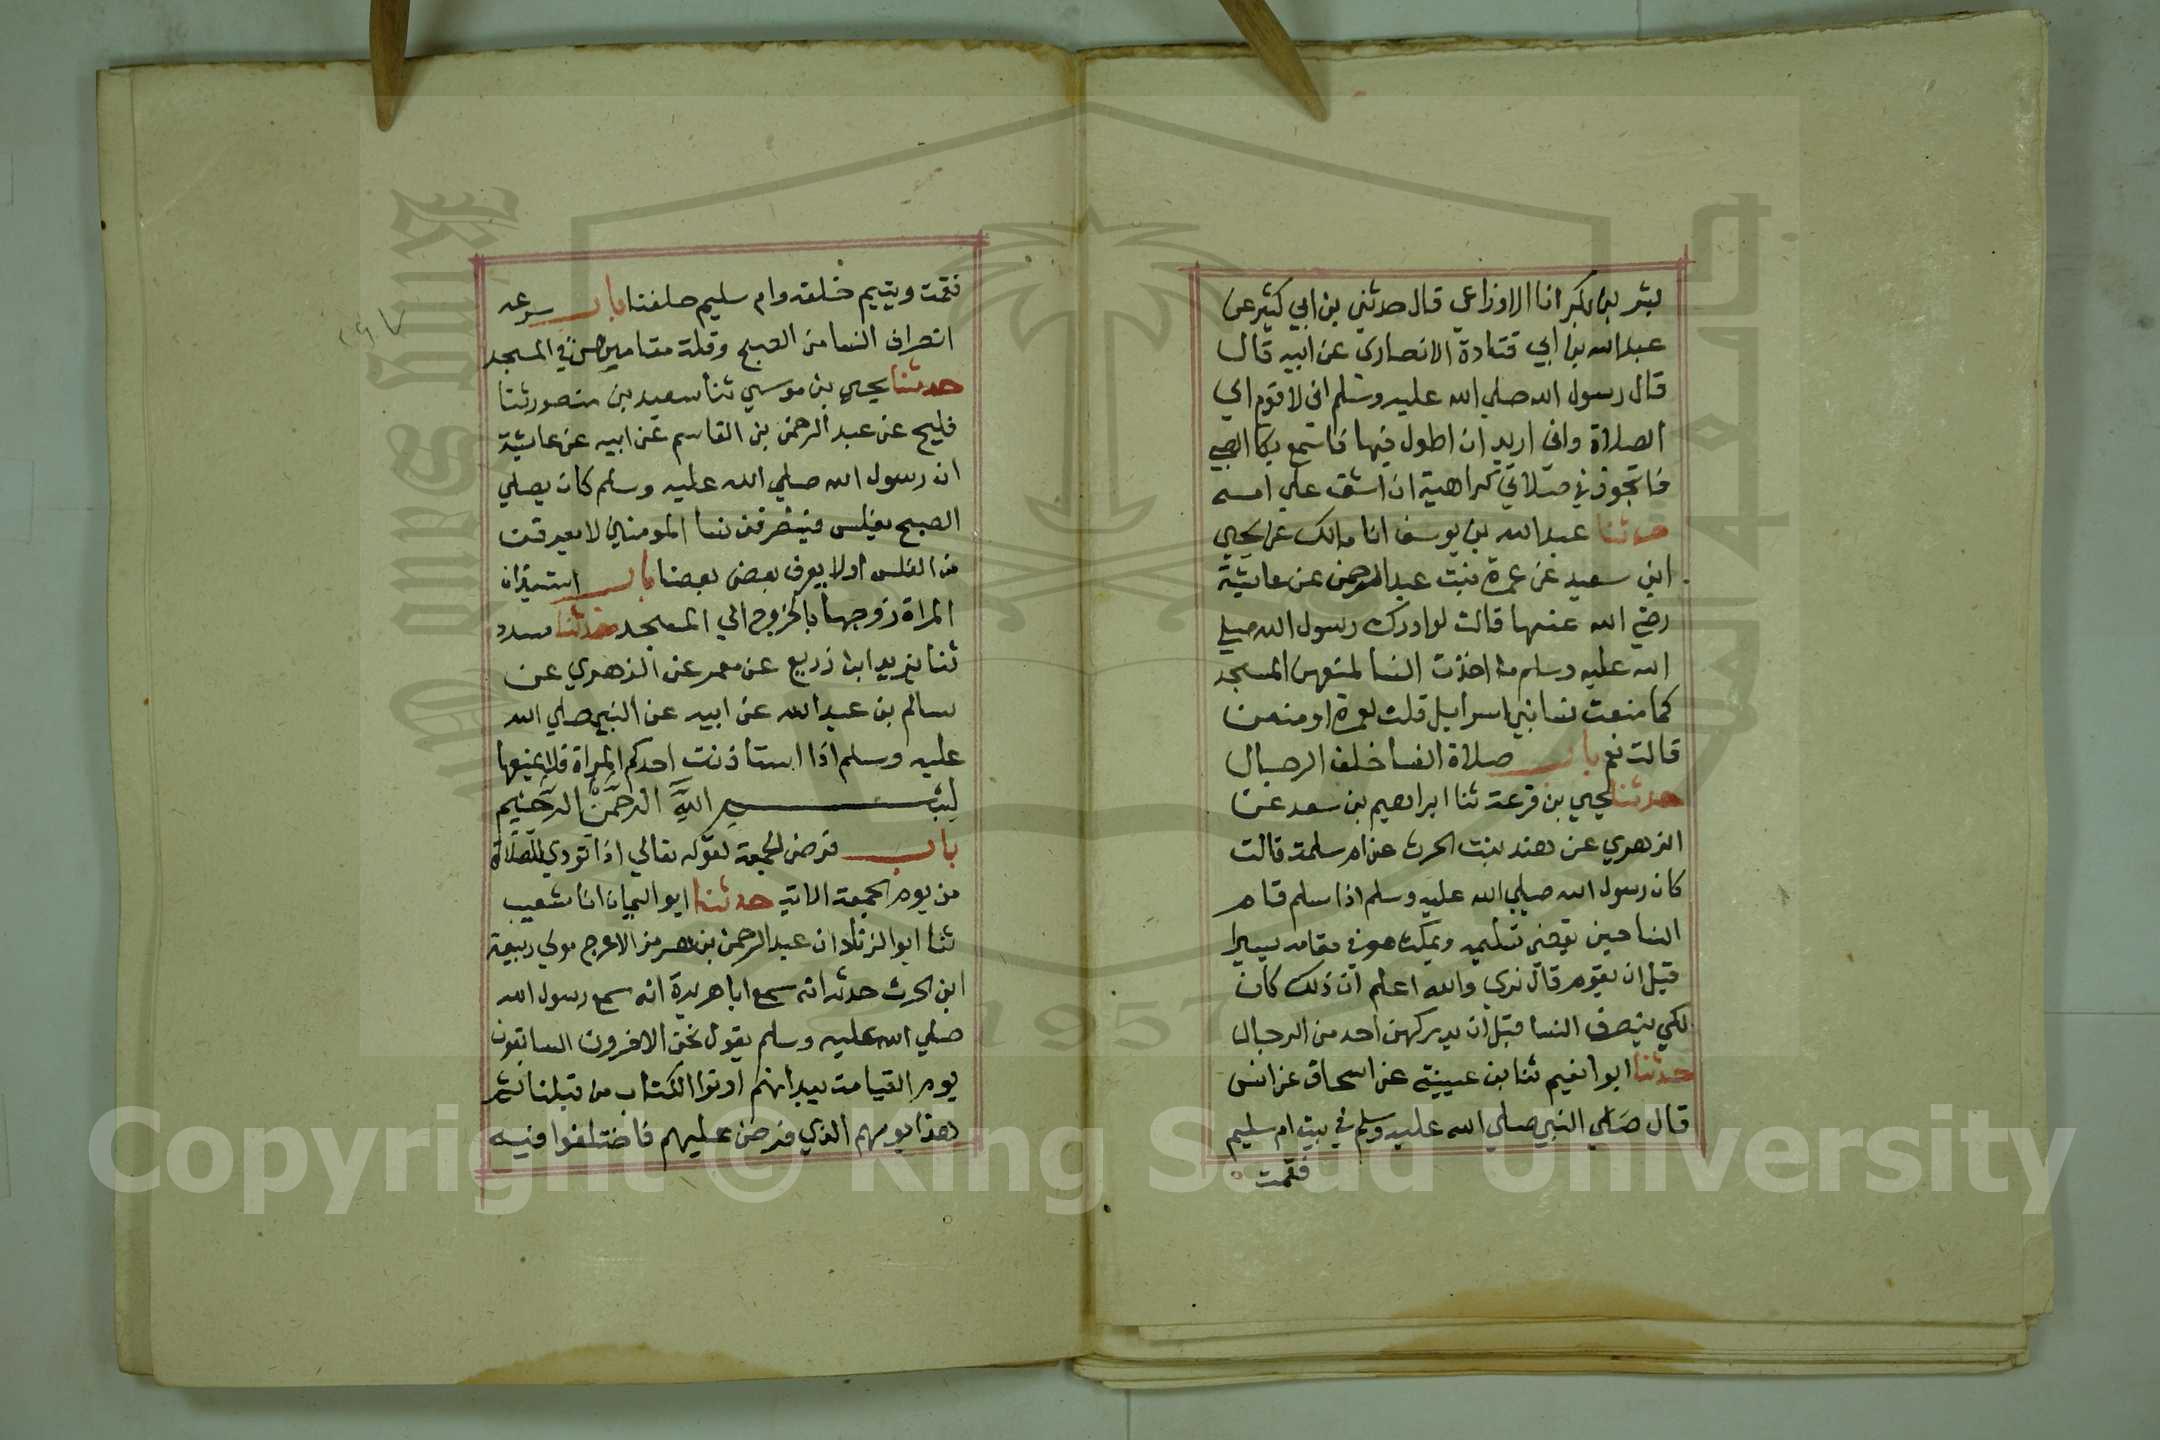 بشر بن بكر انا الاوزاعي قال حدثني بن ابي كثير عن
عبد الله بن ابي قتادة الانصاري عن ابيه قال
قال رسول الله صلي الله عليه وسلم اني لاقوم الي
الصلاة واني اريد ان اطول فيها فاسمع بكا الصبي
فاتجوز في صلاتي كراهية ان اشق علي امه
حدثنا عبد الله بن يوسف انا مالك عن يحيي
ابن سعيد عن عمرة بنت عبد الرحمن عن عايشة
رضي الله عنها قالت لو ادرك رسول الله صلي
الله عليه وسلم ما احدث النسا لمنعهن المسجد
كما منعت نسا بني اسرايل قلت لعمرة او منعن
قالت نعم باب صلاة النسا خلف الرجال
حدثنا يحيي بن قزعة ثنا ابراهيم بن سعد عن
الزهري عن هند بنت الحرث عن ام سلمة قالت
كان رسول الله صلي الله عليه وسلم اذا سلم قام
النسا حين يقضي تسليمه ويمكث هو في مقامه يسيرا
قبل ان يقوم قال نري والله اعلم ان ذلك كان
لكي ينصرف النسا قبل ان يدركهن احد من الرجال
حدثنا ابو نعيم ثنا بن عيينة عن اسحاق عن انس
قال صَلي النبي صلي الله عليه وسلم في بيت ام سليم
فقمت
فقمت ويتيم خلفه وام سليم خلفنا باب سرعه
انصراف النسا من الصبح وقلة مقامهن في المسجد
حدثنا يحيي بن موسي ثنا سعيد بن منصور ثنا
فليح عن عبد الرحمن بن القاسم عن ابيه عن عايشة
ان رسول الله صلي الله عليه وسلم كان يصلي
الصبح بغلس فينصرفن نسا المومنين لا يعرفن
من الغلس او لا يعرف بعضن بعضا باب استيذان
المراة زوجها بالخروج الي المسجد حدثنا مسدد
ثنا يزيد ابن زريع عن معمر عن الزهري عن
سالم بن عبد الله عن ابيه عن النبي صلي الله
عليه وسلم اذا استاذنت احدكم المراة فلا يمنعها
بسم الله الرحمن الرحيم
باب فرض الجمعة لقوله تعالي اذا نودي للصلاة
من يوم الجمعة الاية حدثنا ابو اليمان انا شعيب
ثنا ابو الزناد ان عبد الرحمن بن هرمز الاعرج مولي ربيعة
ابن الحرث حدثه انه سمع ابا هريرة انه سمع رسول الله
صلي الله عليه وسلم يقول نحن الاخرون السابقون
يوم القيامة بيد انهم اوتوا الكتاب من قبلنا ثم
هذا يومهم الذي فرض عليهم فاختلفوا فيه
Copyright © King Saud University
1957